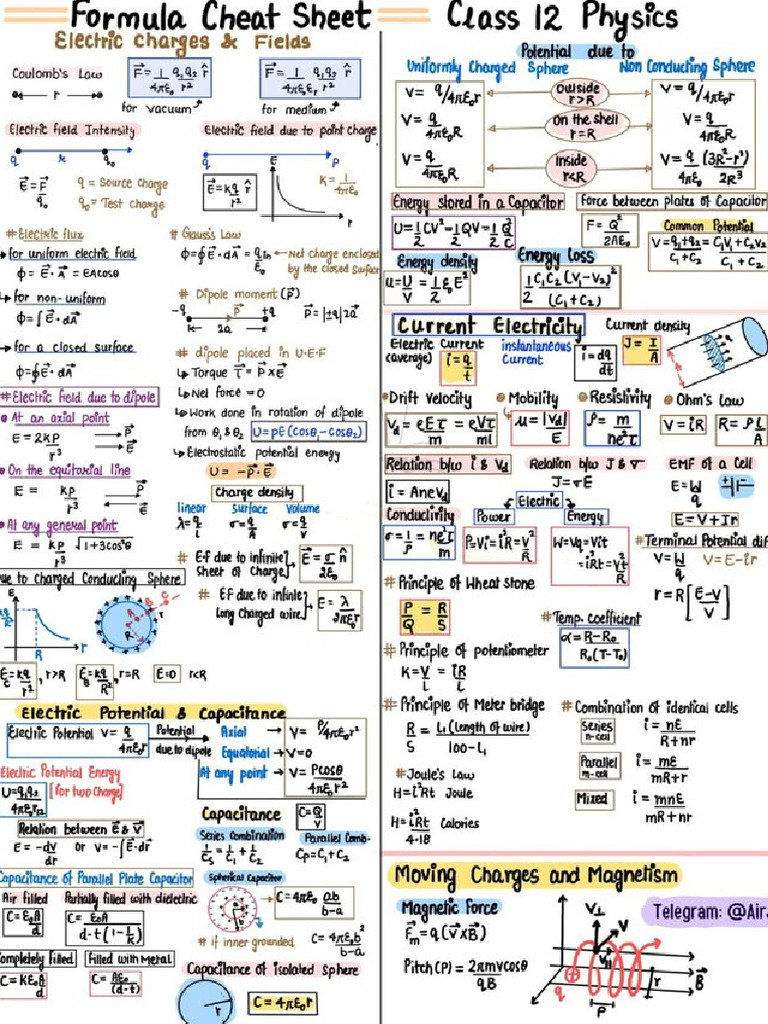 Formula Cheat Sheet
Class 12 Physics
Electric Charges & Fields
Coulomb's Law
F⃗ = 1/4πε₀ q₁q₂/r² r̂
for vacuum
F⃗ = 1/4πε₀εᵣ q₁q₂/r² r̂
for medium
r
Electric field Intensity
q r q₀
E⃗ = F⃗/q₀
q = Source Charge
q₀ = Test charge
Electric field due to point charge
q P
E⃗ = kq/r² r̂
E
r
K = 1/4πε₀
# Electric flux
for uniform electric field
Φ = E⃗·A⃗ = EAcosθ
for non-uniform
Φ = ∫E⃗·dA⃗
for a closed surface
Φ = ∮E⃗·dA⃗
# Gauss's Law
Φ = ∮E⃗·dA⃗ = qin/ε₀
Net charge enclosed
by the closed surface
# Dipole moment (p⃗)
-q P⃗ +q
2a
P⃗ = |±q|2a⃗
# dipole placed in U·E·F
Torque τ⃗ = P⃗×E⃗
Net force = 0
Work done in rotation of dipole
from θ₁ & θ₂ U = pE(cosθ₁-cosθ₂)
Electrostatic potential energy
U = -P⃗·E⃗
# Electric field due to dipole
At an axial point
E = 2KP/r³
P⃗
E⃗
On the equitorial line
E = KP/r³
P⃗
E⃗
At any general point
E = KP/r³ √1+3cos²θ
Charge density
linear Surface Volume
λ = q/L σ = q/A σ = q/V
# E·f due to infinite
Sheet of Charge
E⃗ = σ/2ε₀ n̂
# E·F due to infinite
Long Charged wire
E = λ/2πε₀r
due to charged Conducting Sphere
E
R
r
E = kq/r², r>R
E = kq/R², r=R
E=0 r<R
Electric Potential & Capacitance
Electric Potential V = q/4πε₀r
Potential
due to dipole
Axial → V = P/4πε₀r²
Equatorial → V=0
At any point → V = Pcosθ/4πε₀r²
Electric Potential Energy
U = q₁q₂/4πε₀r₁₂
[for two Charge]
Relation between E⃗ & V⃗
E = -dV/dr or V = -∫E⃗·dr⃗
Capacitance
C = Q/V
Series combination
1/Cs = 1/C₁ + 1/C₂
Parallel Comb-
Cp = C₁+C₂
Capacitance of Parallel Plate Capacitor
Air filled
C = ε₀A/d
Partially filled with dielectric
C = ε₀A/d-t(1-1/k)
Completely filled
C = Kε₀A/d
Filled with Metal
C = Aε₀/(d-t)
Spherical Capacitor
C = 4πε₀ ab/b-a
# if inner grounded
C = 4πε₀b²/b-a
Capacitance of isolated sphere
r
C = 4πε₀r
Potential due to
Uniformly Charged Sphere
Non Conducting Sphere
V = q/4πε₀r
outside
r>R
V = q/4πε₀r
V = q/4πε₀R
On the shell
r=R
V = q/4πε₀R
V = q/4πε₀R
inside
r<R
V = q/4πε₀ (3R²-r²)/2R³
Energy stored in a Capacitor
U = 1/2 CV² = 1/2 QV = 1/2 Q²/C
Force between plates of Capacitor
F = Q²/2Aε₀
Common Potential
V = q₁+q₂/C₁+C₂ = C₁V₁+C₂V₂/C₁+C₂
Energy density
u = U/V = 1/2 ε₀E²
Energy loss
1/2 C₁C₂(V₁-V₂)²/(C₁+C₂)
Current Electricity
Electric Current
(average)
i = q/t
instantaneous
Current
i = dq/dt
Current density
J = I/A
Drift Velocity
Vd = eEτ/m = eVτ/ml
Mobility
μ = |Vd|/E
Resistivity
ρ = m/ne²τ
Ohm's law
V = iR
R = ρL/A
Relation b/w i & Vd
i = AneVd
Relation b/w J & σ
J = σE
EMF of a Cell
E = W/q
E = V+Ir
Conductivity
σ = 1/ρ = ne²τ/m
Electric
Power
P = Vi = i²R = V²/R
Energy
W = Vq = Vit
= i²Rt = V²t/R
# Terminal Potential dif
V = W/q V = E-ir
r = R[E-V/V]
# Principle of Wheat stone
P/Q = R/S
# Temp. coefficient
α = R-R₀/R₀(T-T₀)
# Principle of potentiometer
K = V/L = iR/L
# Principle of Meter bridge
R/S = L₁(length of wire)/100-L₁
# Joule's Law
H = i²Rt Joule
H = i²Rt/4.18 Calories
# Combination of identical cells
Series
n-cell
i = nE/R+nr
Parallel
m-cell
i = mE/mR+r
Mixed
i = mnE/mR+nr
Moving Charges and Magnetism
Magnetic Force
F⃗m = q(V⃗×B⃗)
Pitch(P) = 2πmvcosθ/qB
V⊥
V
V∥
q
P
r
B⃗
Telegram: @Air